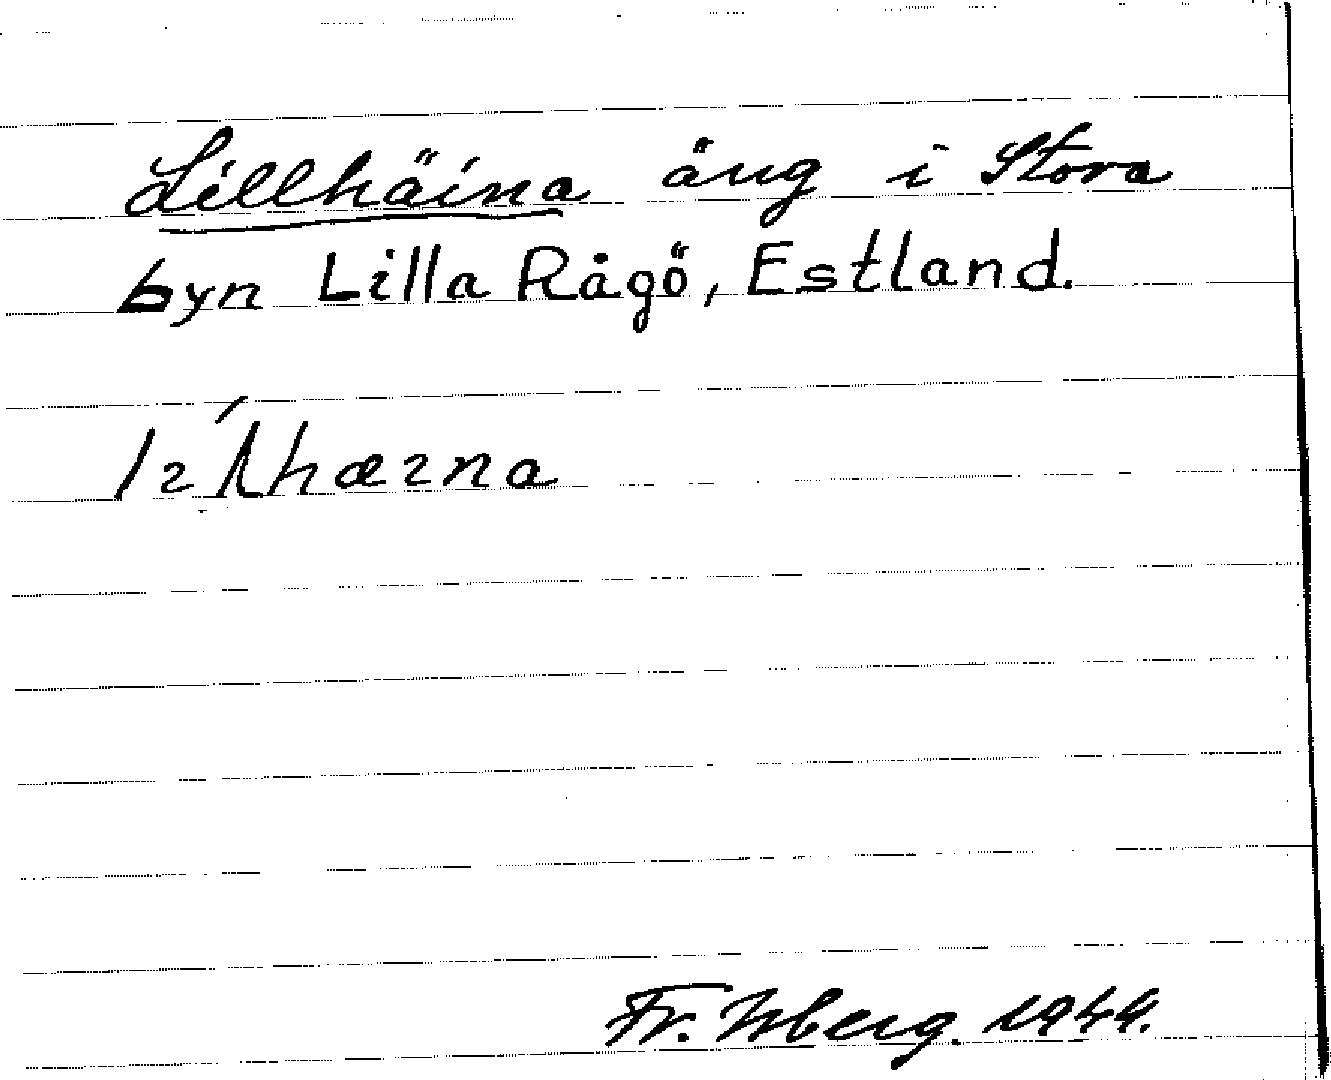 Lillhäina äng i Stora
byn Lilla Rågö, Estland.
Fr. Isberg. 1944.